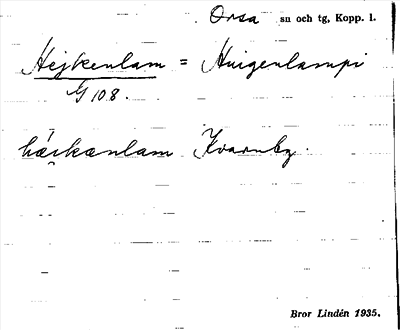 Orsa sn och tg, Kopp. l.
Hejkenlam = Huigenlampi
G 108.
hæikænlam Kvarnby.
Bror Lindén 1935.